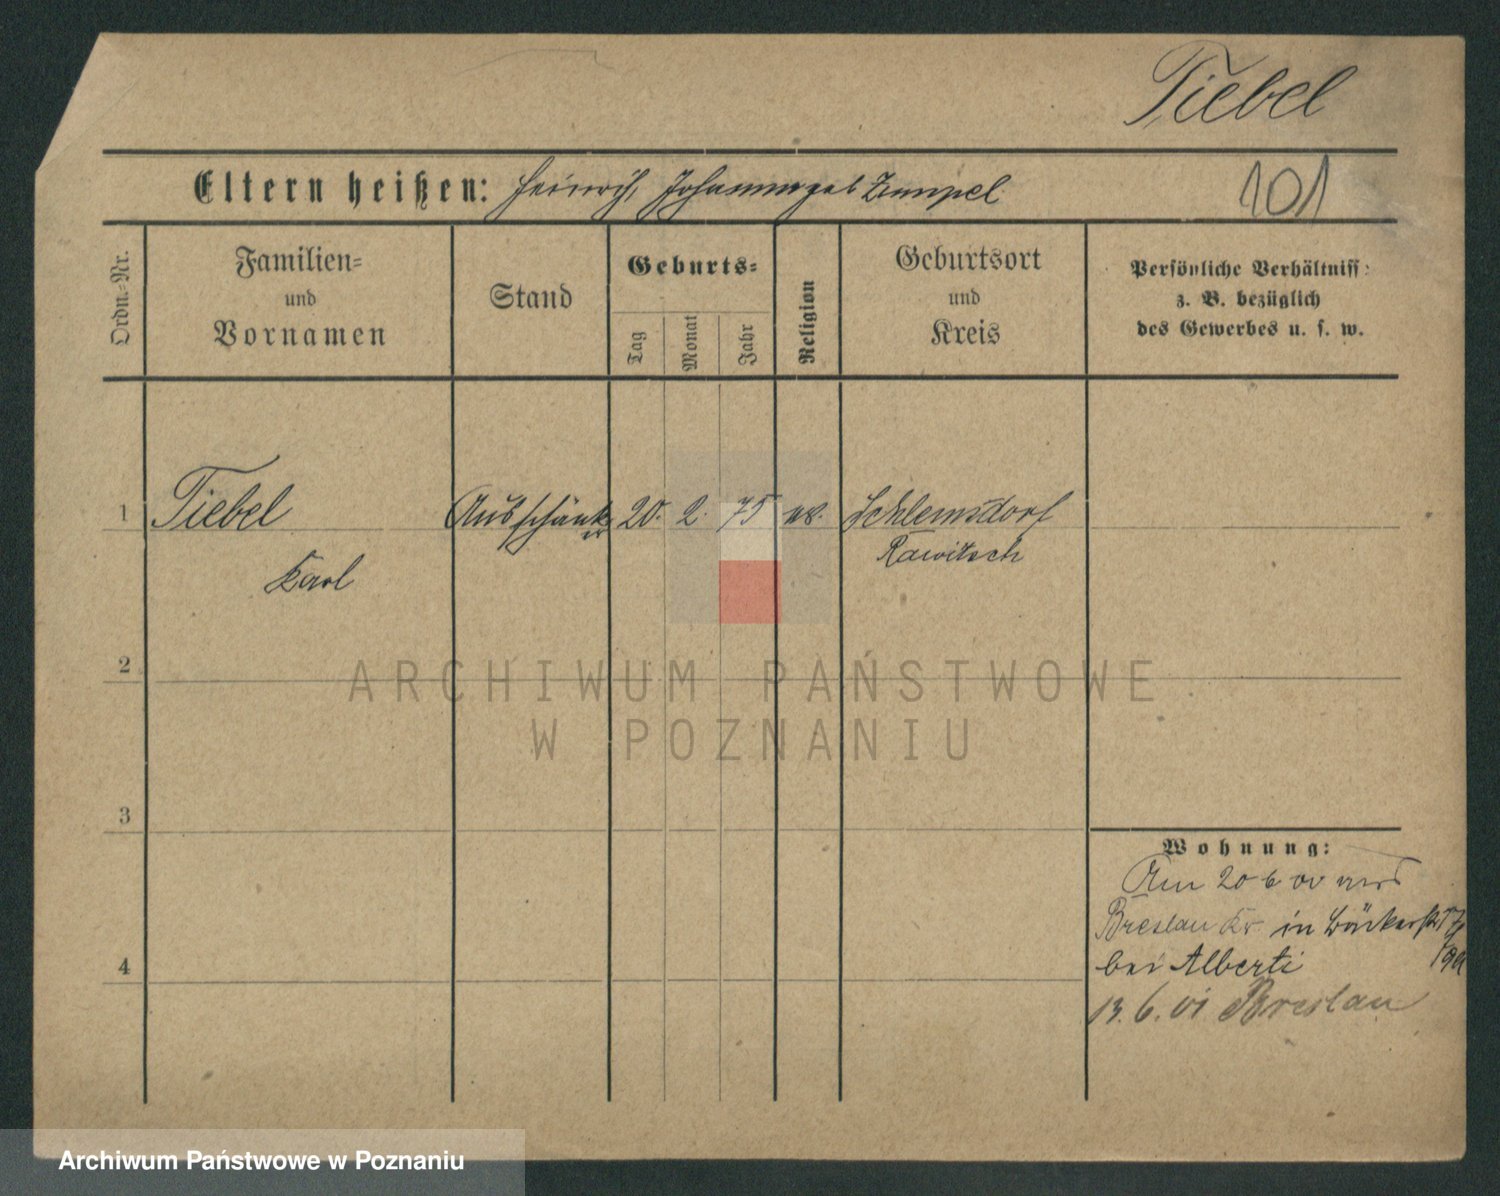 Tiebel
Eltern heißen: Heinrich, Johanna geb Zimpel
101
Ordn.-Nr.
Familien-
und
Vornamen
Stand
Geburts-
Tag
Monat
Jahr
Religion
Geburtsort
und
Kreis
Persönliche Verhältniss:
z. B. bezüglich
des Gewerbes u. s. w.
1 Tiebel Ausschänk 20. 2. 75 ev. Schlemsdorf
er
Rawitsch
Karl
2
ARCHIWUM PAŃSTWOWE
W POZNANIU
3
Wohnung:
Am 20 6 00 von
Breslau Kr. in Bäckerstr 17
4
bei Alberti
13. 6. 01 Breslau
Archiwum Państwowe w Poznaniu